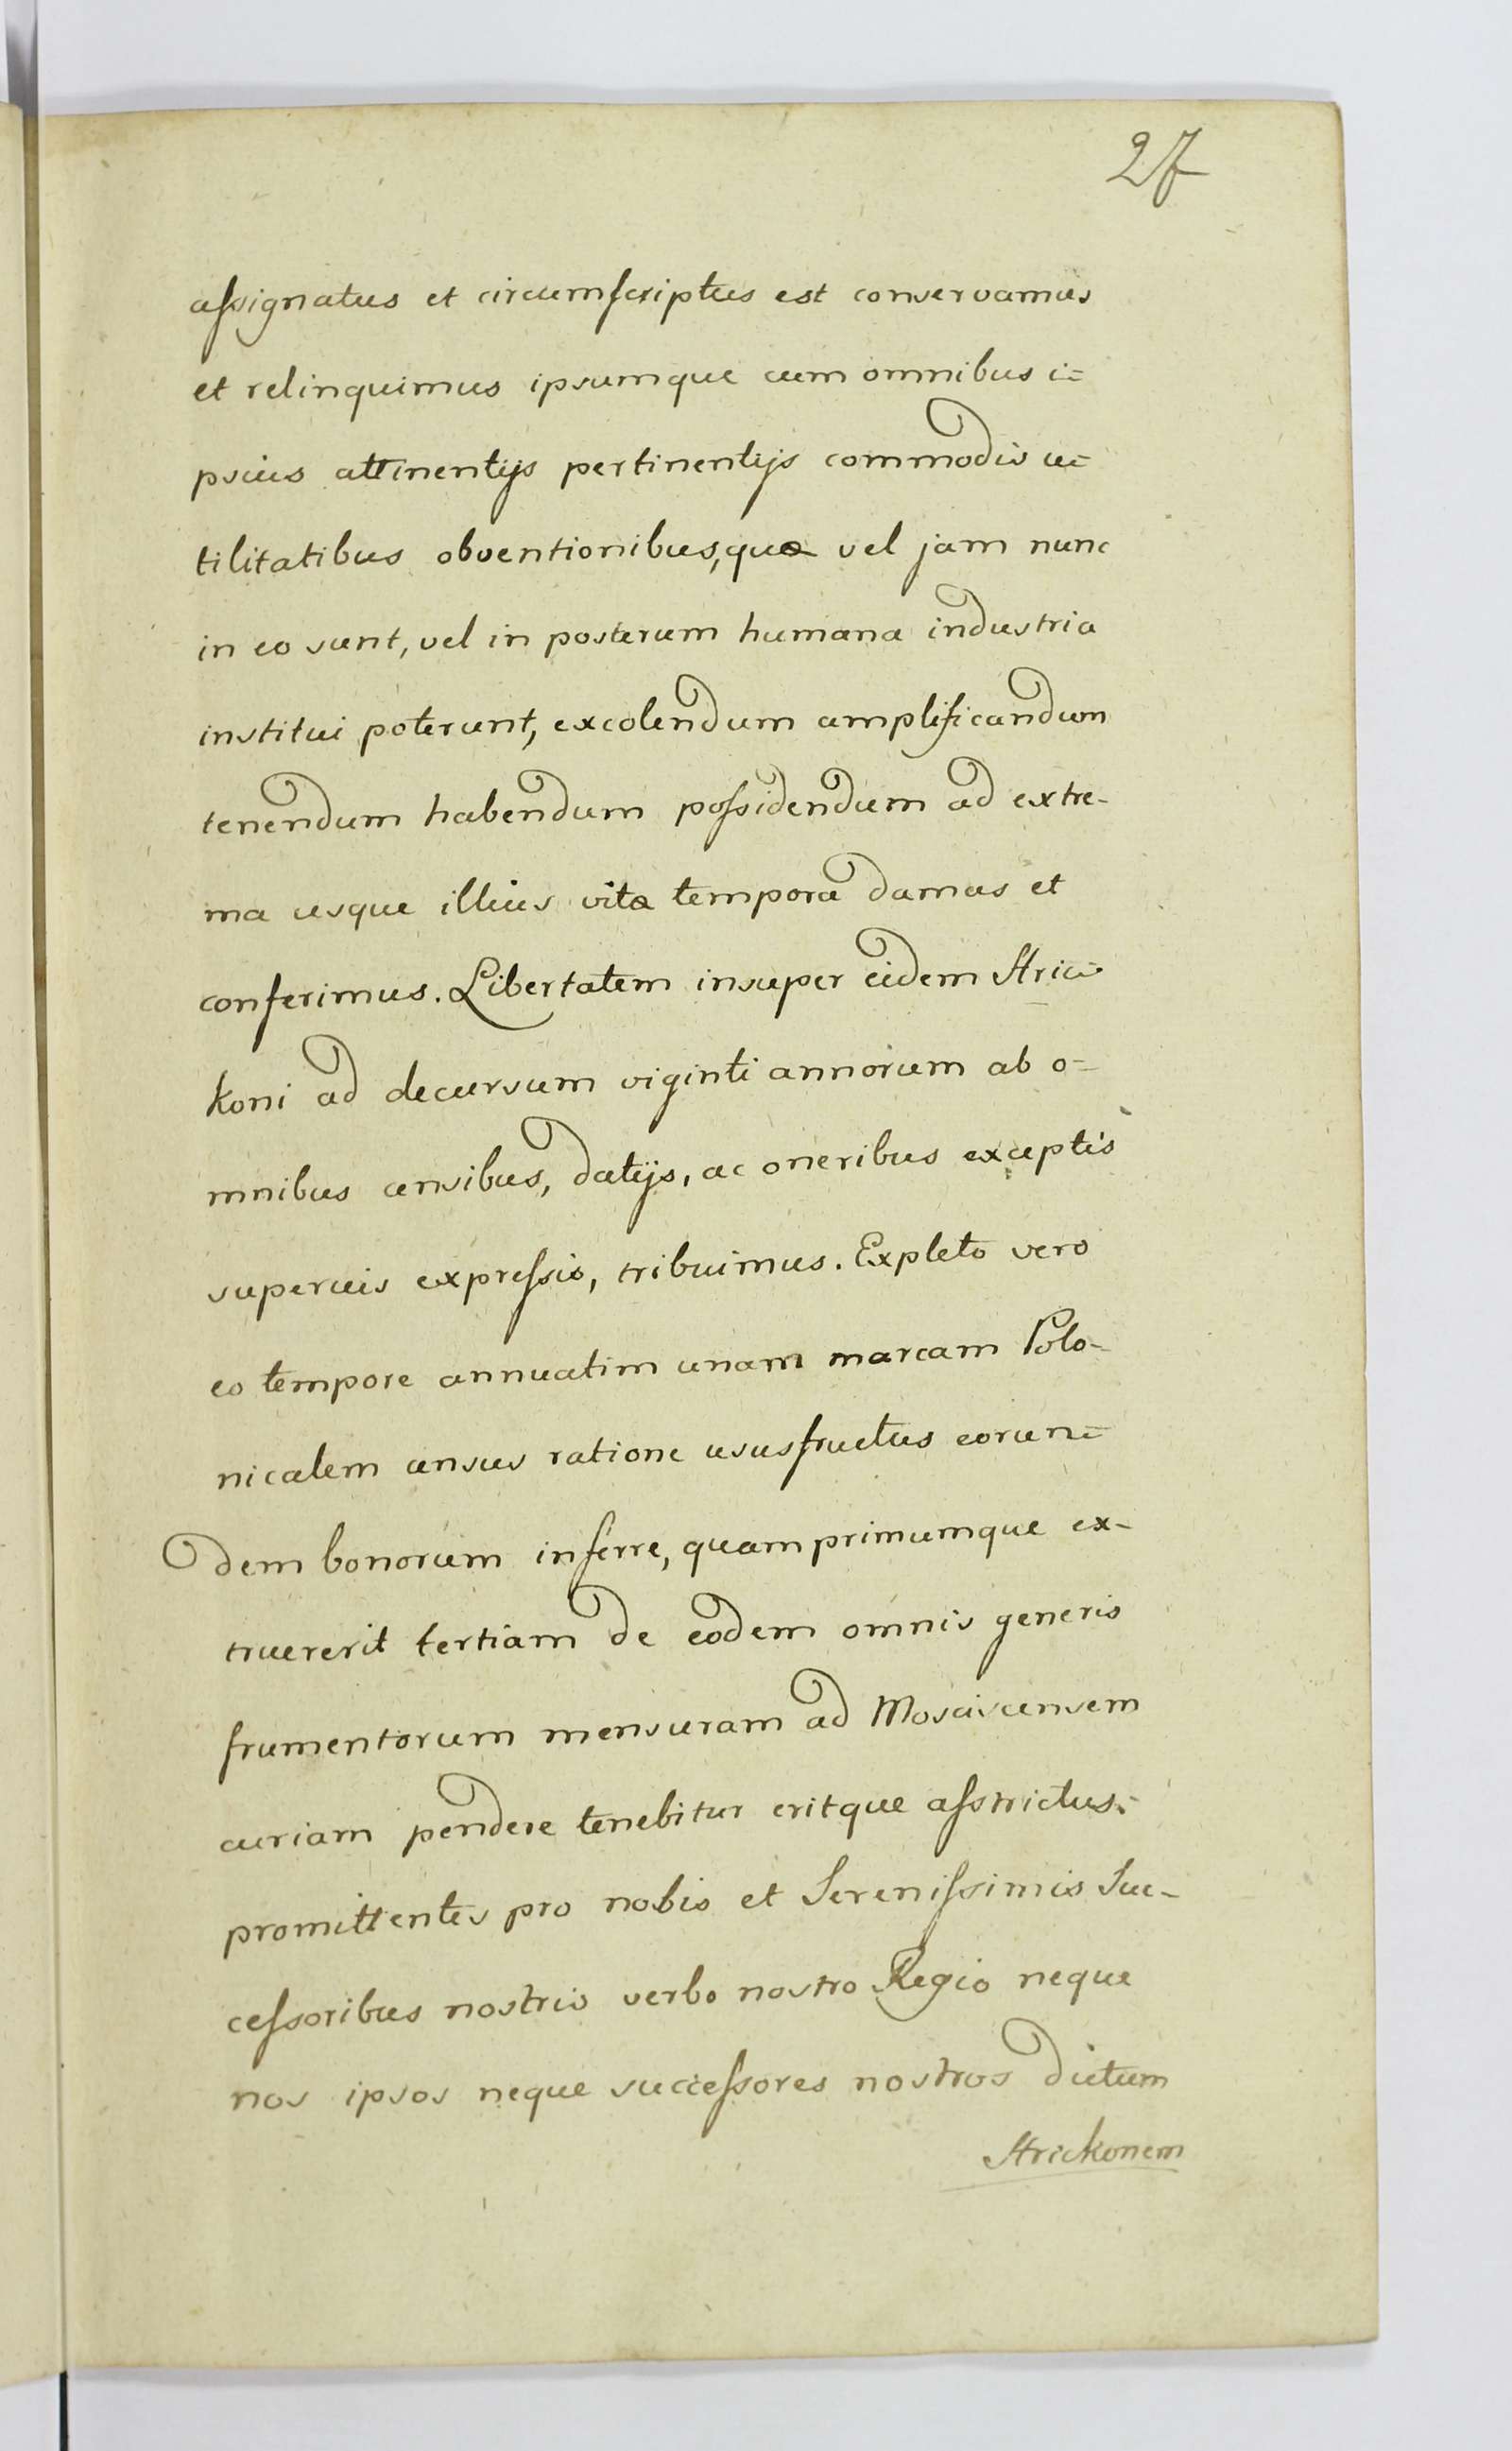 27
assignatus et circumscriptus est conservamus
et relinquimus ipsumque cum omnibus i=
psius attinentijs pertinentijs commodis u=
tilitatibus obventionibus, quæ vel jam nunc
in eo sunt, vel in posterum humana industria
institui poterunt, excolendum amplificandum
tenendum habendum possidendum ad extre-
ma usque illius vitæ tempora damus et
conferimus. Libertatem insuper eidem Stric=
koni ad decursum viginti annorum ab o=
mnibus censibus, datijs, ac oneribus exceptis
superius expressis, tribuimus. Expleto vero
eo tempore annuatim unam marcam Polo-
nicalem census ratione ususfructus eorun=
dem bonorum inferre, quamprimumque ex-
truererit tertiam de eodem omnis generis
frumentorum mensuram ad Mosciscensem
curiam pendere tenebitur eritque asstrictus.
promittentes pro nobis et Serenissimis Suc-
cessoribus nostris verbo nostro Regio neque
nos ipsos neque successores nostros dictum
Strickonem